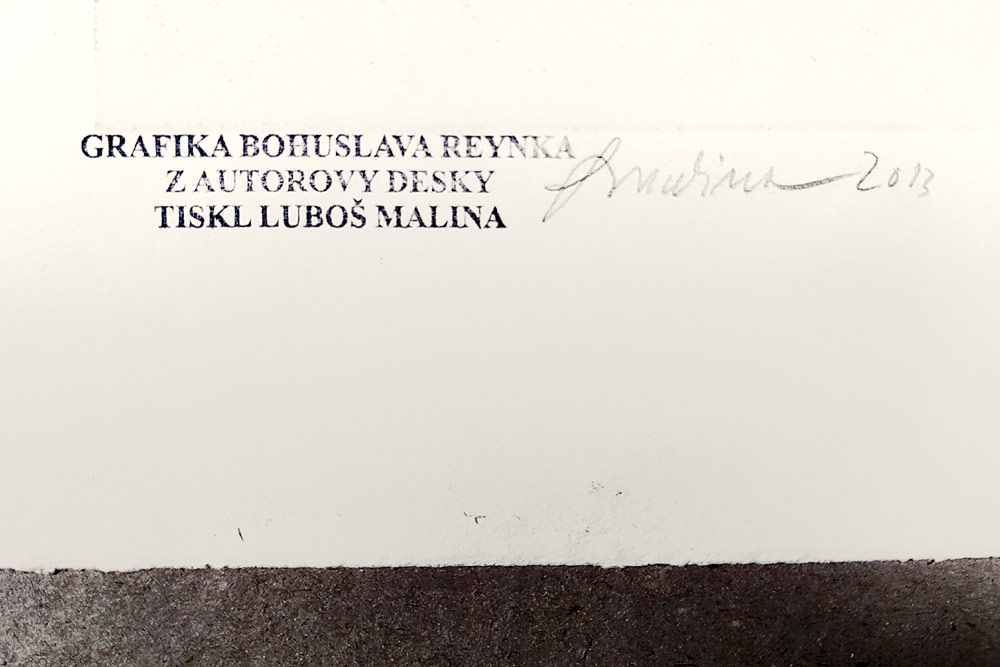 GRAFIKA BOHUSLAVA REYNKA
Z AUTOROVY DESKY
TISKL LUBOŠ MALINA
Malina 2013